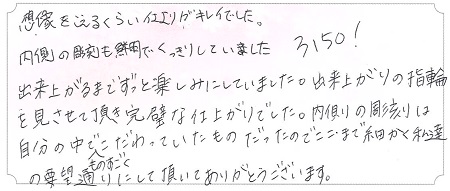 想像をこえるくらい仕上りがキレイでした。
内側の彫刻も鮮明でくっきりしていました 3150!
出来上がるまでずっと楽しみにしていました。出来上がりの指輪
を見させて頂き完璧な仕上がりでした。内側りの周刻りは
自分の中でこだわっていたものだったのでここまで細かく私達
の要望通りにものすごくして頂いてありがとうございます。